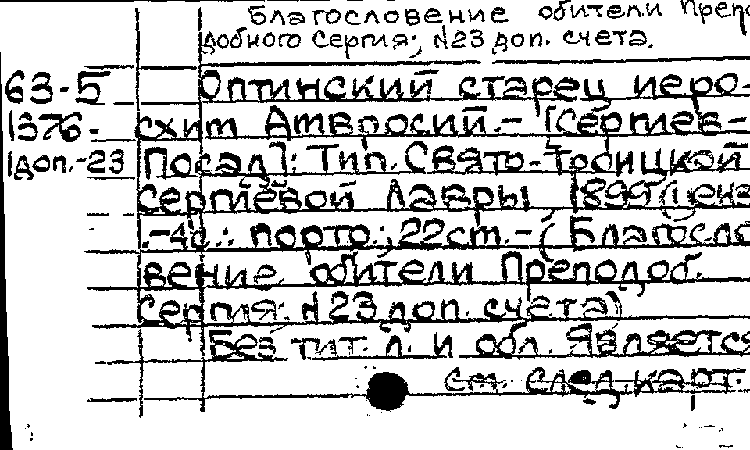 Благословение обители Препо
добного Сергия; N23 доп. счета.
63-5 Оптинский старец иеро-
1376- схим Амвросий.- [Сергиев-
1доп.-23 Посад]: Тип. Свято-Троицкой
Сергиевой Лавры 1899 (ценз
.-4с.: портр.; 22см.- ( Благосло
вение обители Препод.
Сергия: N23 доп. счета)
Без тит. л. и обл. Является
см. след. карт.